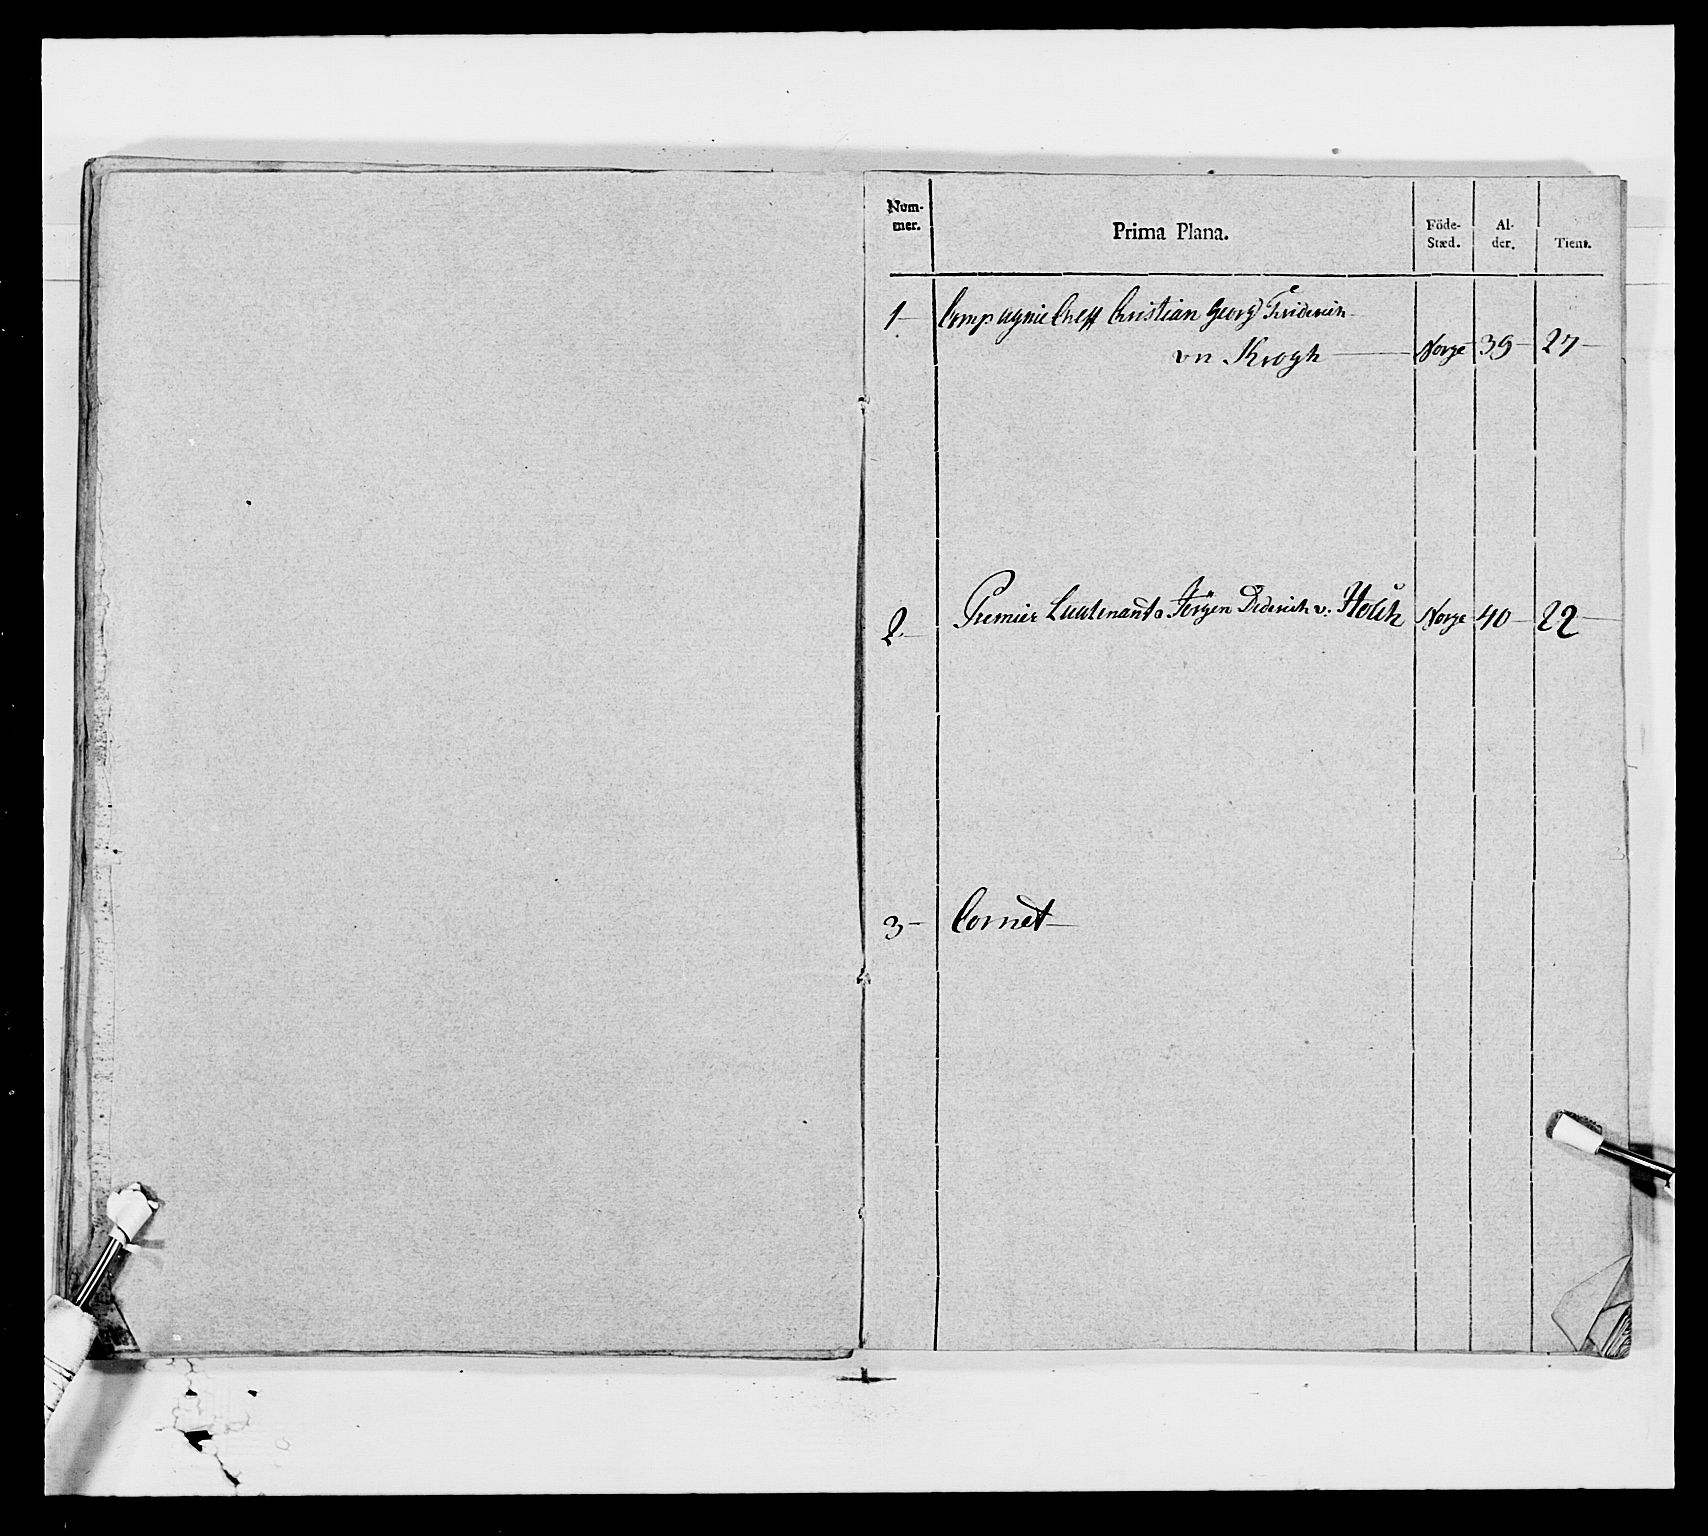 Nom-
mer.
Prima Plana.
Föde-
Stæd.
Al-
der.
Tient.
1- Compagnie Cheff Christian Georg Friderich
vn Krogh - Norge 39 - 27 -
2. Premier Lieutenant Jørgen Diderich v. Norge 40 - 22 -
3 - Cornet -